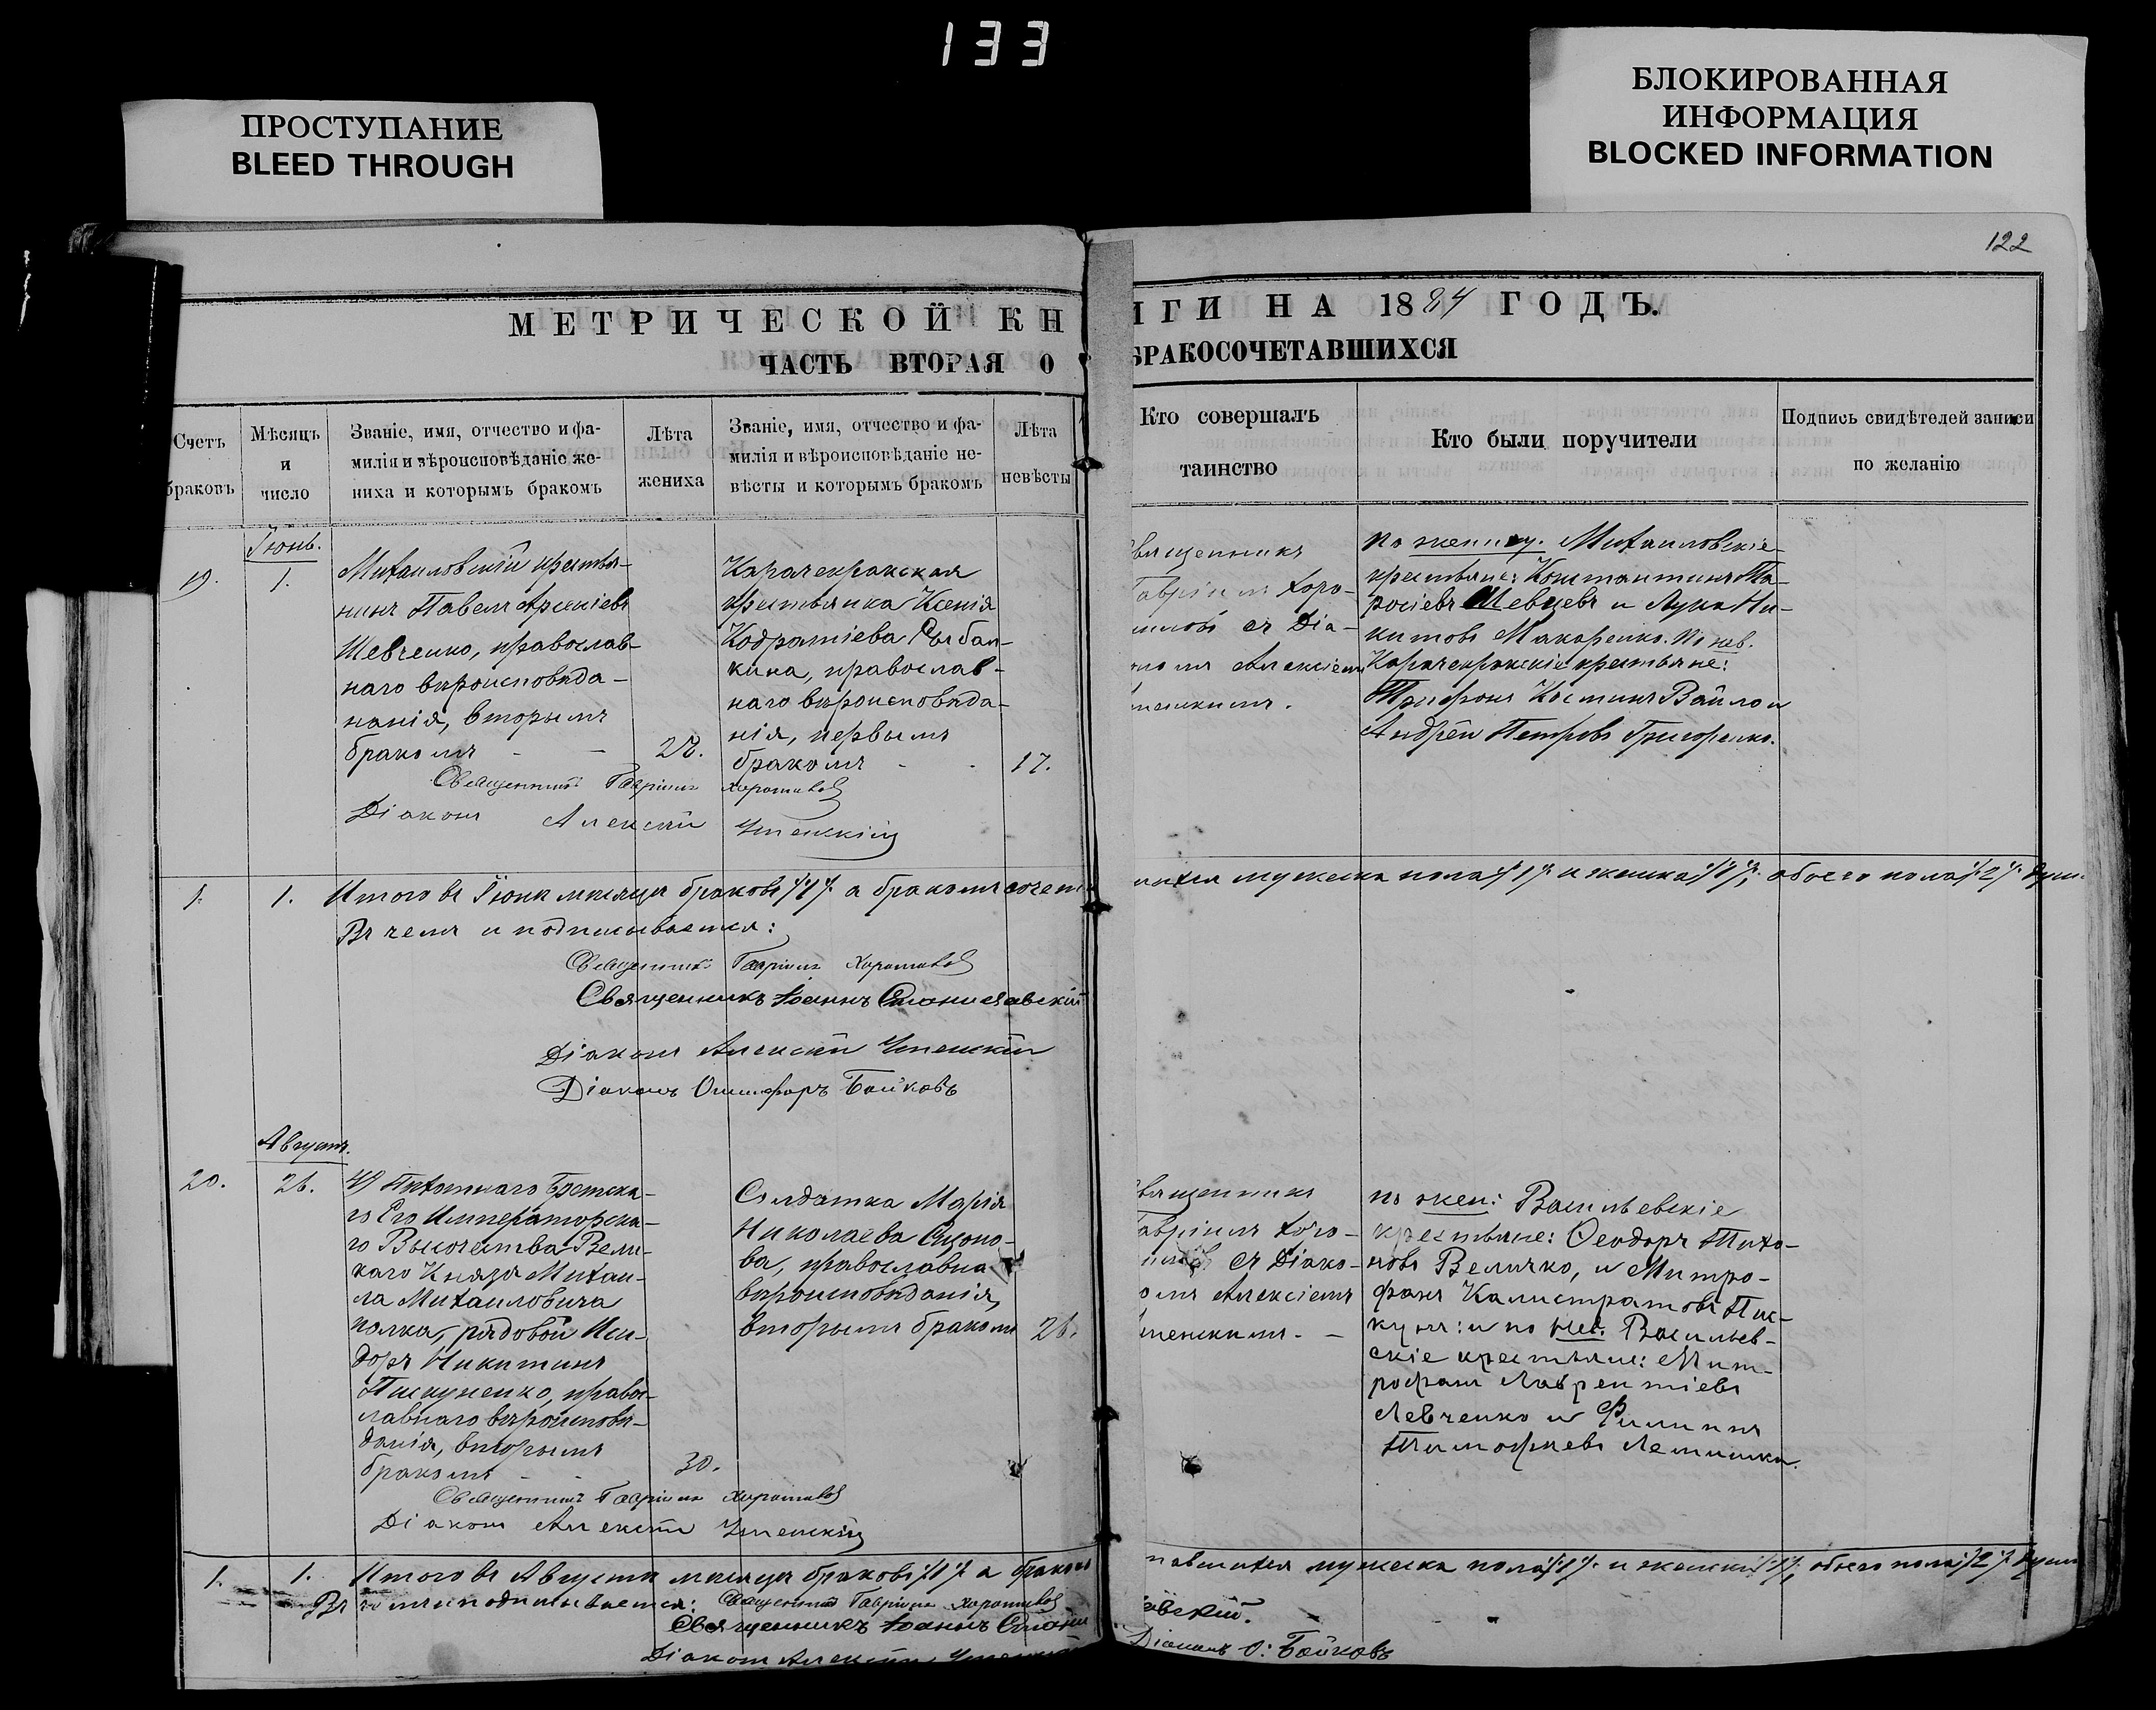 133
ПРОСТУПАНИЕ
BLEED THROUGH
БЛОКИРОВАННАЯ
ИНФОРМАЦИЯ
BLOCKED INFORMATION
122
МЕТРИЧЕСКОЙ КН
ИГИ НА 1884 ГОДЪ.
ЧАСТЬ ВТОРАЯ О
БРАКОСОЧЕТАВШИХСЯ
Счетъ
браковъ
Мѣсяцъ
и
число
Званіе, имя, отчество и фа-
милія и вѣроисповѣданіе же-
ниха и которымъ бракомъ
Лѣта
жениха
Званіе, имя, отчество и фа-
милія и вѣроисповѣданіе не-
вѣсты и которымъ бракомъ
Лѣта
невѣсты
Кто совершалъ
таинство
Кто были поручители
Подпись свидѣтелей записи
по желанію
Іюнь.
19.
1.
Михаиловскій крестья-
нинъ Павелъ Арсеніевъ
Шевченко, православ-
наго вѣроисповѣда-
нанія, вторымъ
бракомъ - -
28.
Карачекракская
крестьянка Ксенія
Кодратіева
кина, православ-
наго вѣроисповѣда-
нія, первымъ
бракомъ - -
17.
священникъ
Гавріилъ Хоро-
шиловъ съ Діа-
кономъ Алексіемъ
По жениху. Михаиловскіе
крестьяне: Константинъ Та-
расіевъ Шевцевъ и Лука Ни-
китовъ Макаренко. По нев.
Карачекракскіе крестьяне:
Трифонъ Косминъ Вайло и
Андрей Петровъ Григоренко.
Священникъ Гавріилъ
Діаконъ Алексѣй Успенскій
1.
1.
Итого въ Іюнѣ мѣсяцѣ браковъ /:1:/ а бракомъ сочета
лихся мужеска пола /:1:/ и женска /:1:/, обоего пола /:2:/ душ
Въ чемъ и подписываемся:
Священникъ Гавріилъ
Священникъ Іоаннъ Станиславскій
Діаконъ Алексѣй Успенскій
Діаконъ Онисифоръ Байковъ
Августъ.
20.
26.
49 Пѣхотнаго Брестска-
го Его Императорска-
го Высочества Вели-
каго Князя Михаи-
ла Михаиловича
полка, рядовой Иси-
доръ Никитинъ
Пискуненко, правос-
лавнаго вѣроисповѣ-
данія, вторымъ
бракомъ - -
30.
Солдатка Марія
Николаева
ва, православна
вѣроисповѣданія,
вторымъ бракомъ
26.
священникъ
Гавріилъ Хоро-
съ Діако-
омъ Алексіемъ
По жен: Васильевскіе
крестьяне: Ѳеодоръ Тихо-
новъ Величко, и Митро-
фанъ Калистратовъ Пис-
кунъ: и по нев. Васильев-
скіе крестьяне: Мит-
рофанъ Лаврентіевъ
Левченко и Филиппъ
Тимофѣевъ
Священникъ Гавріилъ
Діаконъ Алексѣй Успенскій
1.
1.
Итого въ Августѣ мѣсяцѣ браковъ /:1:/ а бракомъ
мужеска пола /:1:/ и женска /:1:/, обоего пола /:2:/ душ
Въ чемъ и подписываемся: Священникъ Гавріилъ
Священникъ Іоаннъ Стани
авскій.
Діаконъ Алексѣй
Діаконъ О: Байковъ